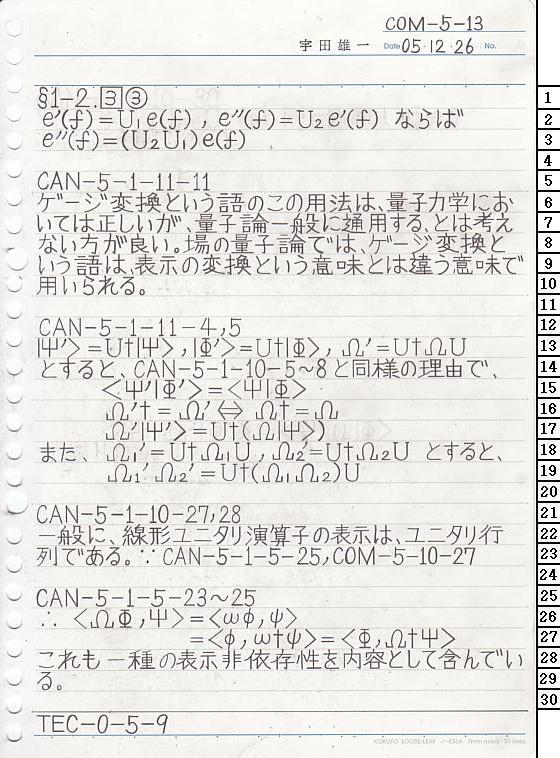 COM-5-13
宇田雄一 Date 05・12・26 No.
§1-2.③③
e'(f)=U₁e(f), e''(f)=U₂e'(f) ならば
e''(f)=(U₂U₁)e(f)
CAN-5-1-11-11
ゲージ変換という語のこの用法は、量子力学にお
いては正しいが、量子論一般に通用する、とは考え
ない方が良い。場の量子論では、ゲージ変換と
いう語は、表示の変換という意味とは違う意味で
用いられる。
CAN-5-1-11-4,5
|Ψ'>=U†|Ψ>, |Φ'>=U†|Φ>, Ω'=U†ΩU
とすると、CAN-5-1-10-5~8と同様の理由で、
<Ψ'|Φ'>=<Ψ|Φ>
Ω'†=Ω'⇔Ω†=Ω
Ω'|Ψ'>=U†(Ω|Ψ>)
また、Ω₁'=U†Ω₁U, Ω₂'=U†Ω₂U とすると、
Ω₁'Ω₂'=U†(Ω₁Ω₂)U
CAN-5-1-10-27,28
一般に、線形ユニタリ演算子の表示は、ユニタリ行
列である。∵CAN-5-1-5-25,COM-5-10-27
CAN-5-1-5-23~25
∴ <ΩΦ,Ψ>=<ωφ,ψ>
=<φ,ω†ψ>=<Φ,Ω†Ψ>
これも一種の表示非依存性を内容として含んでい
る。
TEC-0-5-9
KOKUYO LOOSE-LEAF ノ-836A 7mm ruled 31 lines
1
2
3
4
5
6
7
8
9
10
11
12
13
14
15
16
17
18
19
20
21
22
23
24
25
26
27
28
29
30